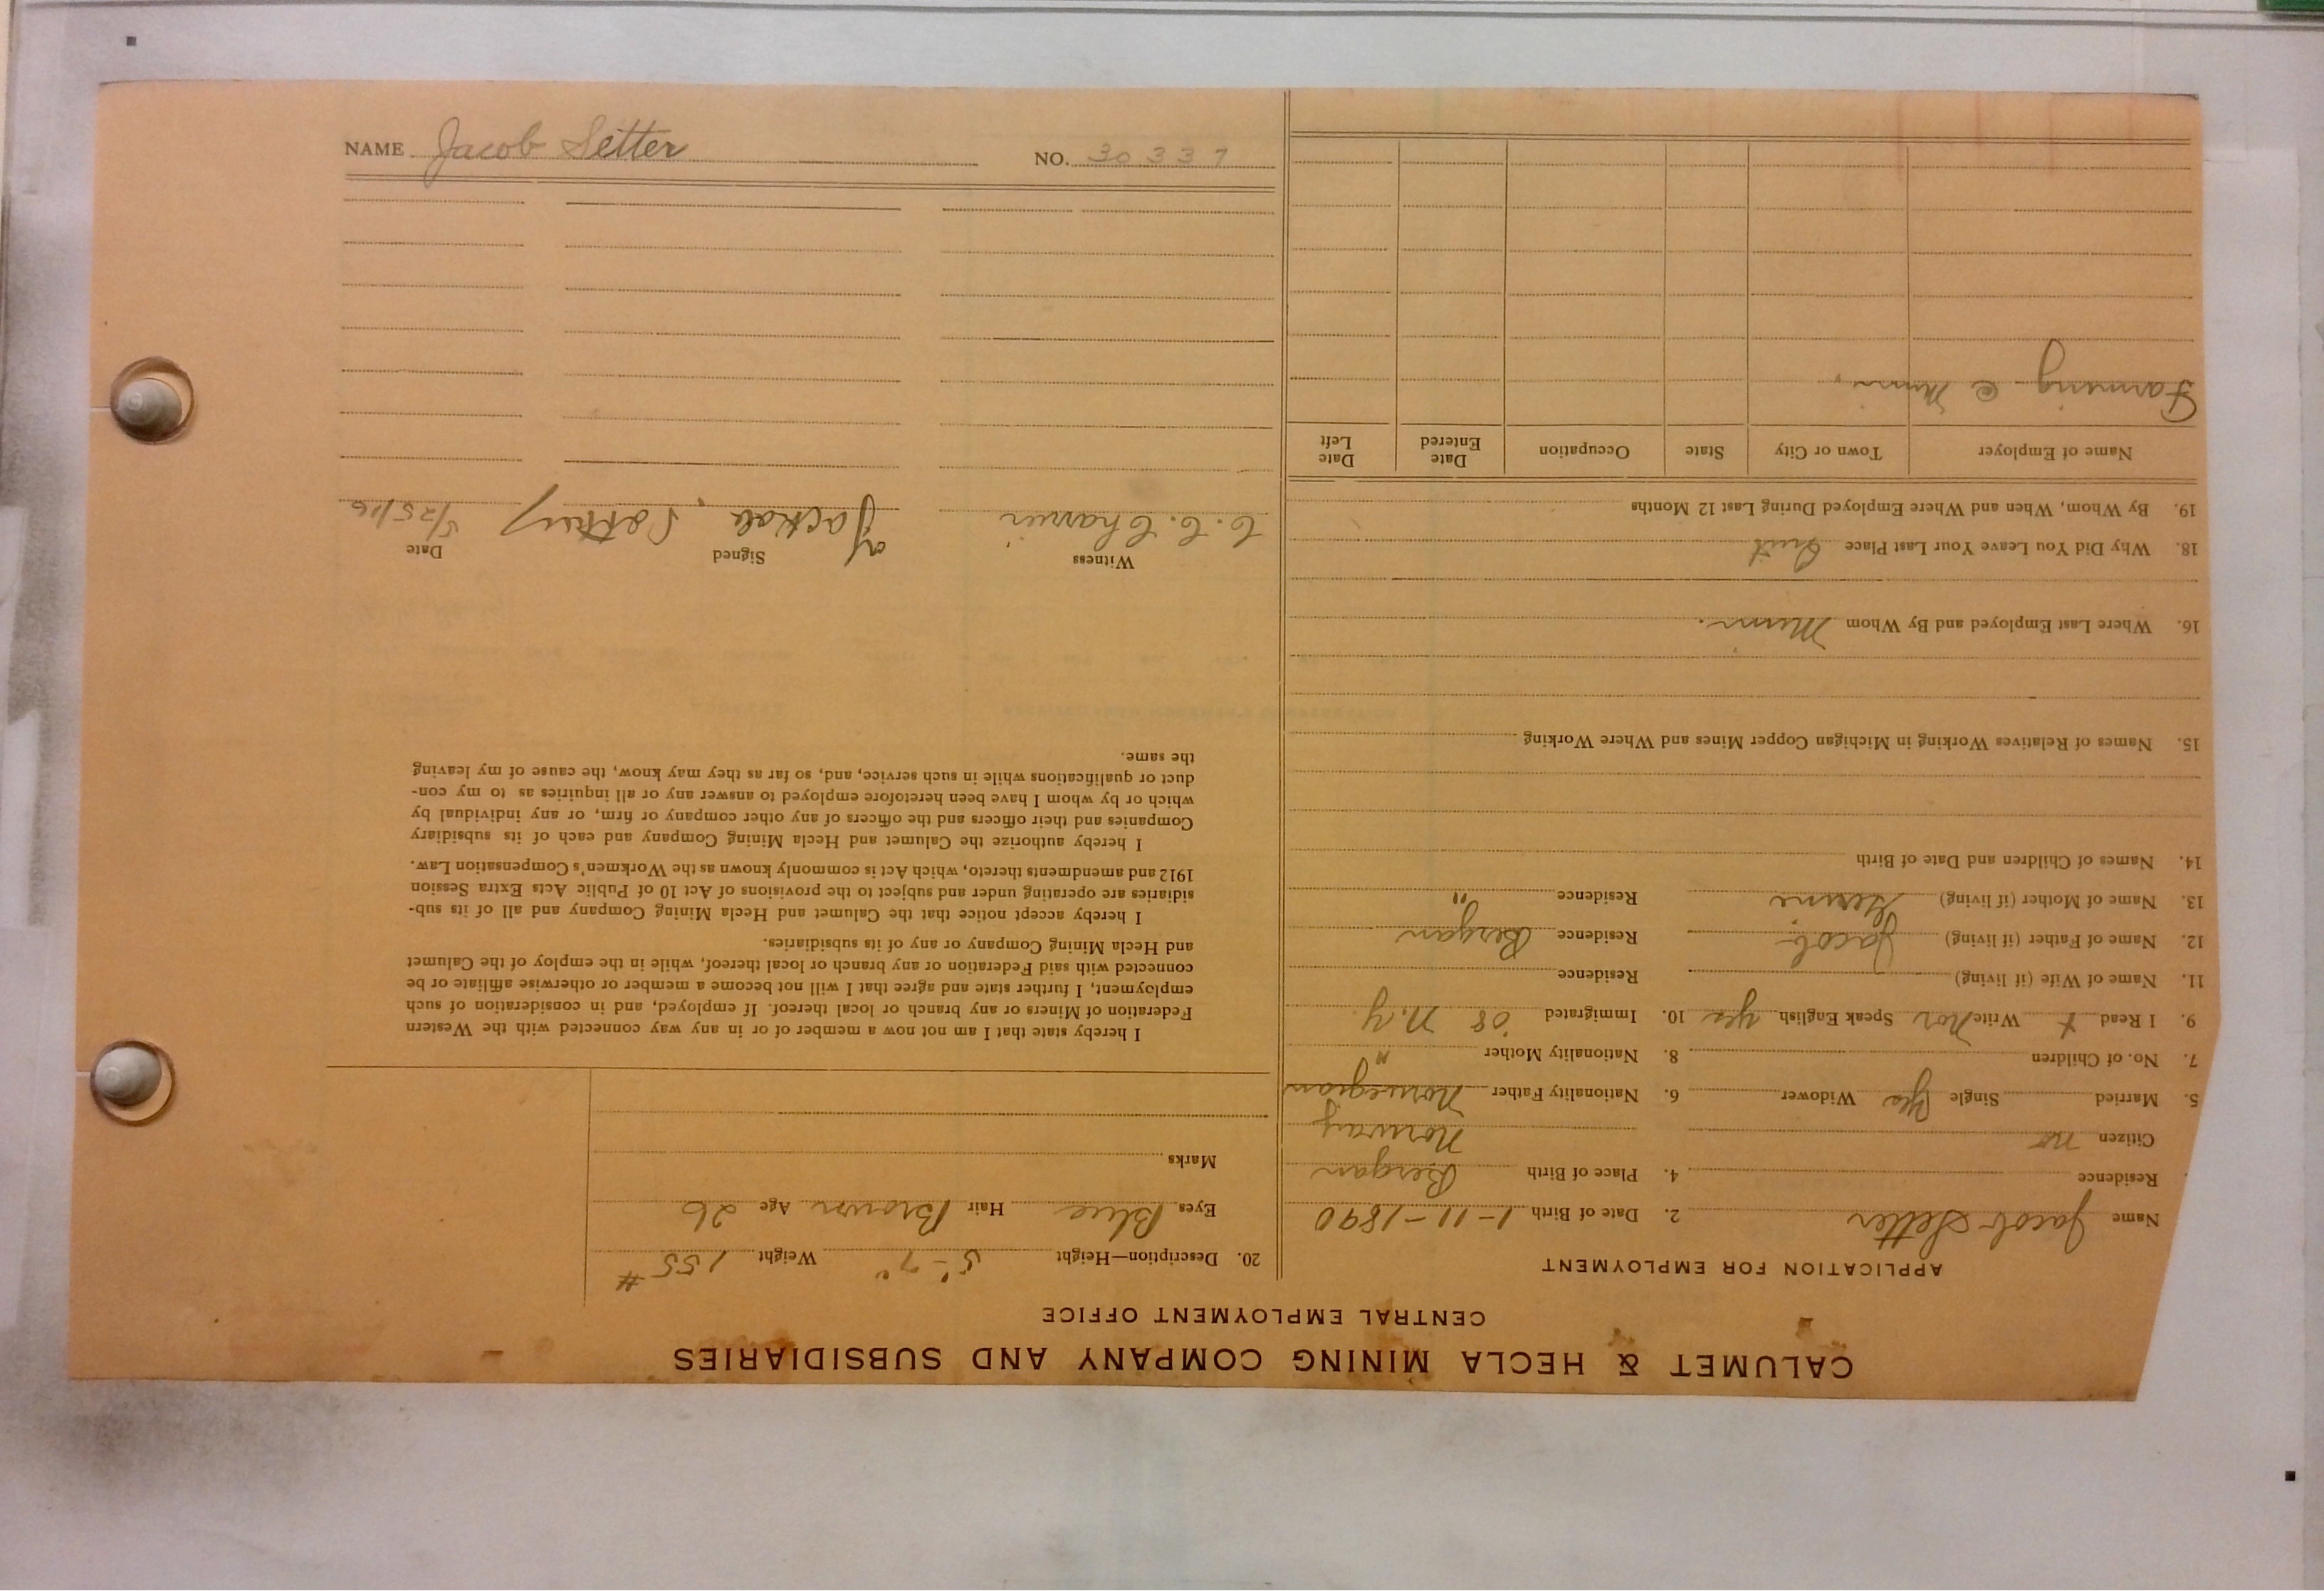 CALUMET & HECLA MINING COMPANY AND SUBSIDIARIES
CENTRAL EMPLOYMENT OFFICE
APPLICATION FOR EMPLOYMENT
Name Jacob Setter 2. Date of Birth 1-11-1890
Residence 4. Place of Birth Bergan
Citizen no Norway
5. Married Single Yes Widower 6. Nationality Father Norwegian
7. No. of Children 8. Nationality Mother "
9. I Read + Write Nor Speak English yes 10. Immigrated 08 N.Y.
11. Name of Wife (if living) Residence
12. Name of Father (if living) Jacob Residence Bergan
13. Name of Mother (if living) Residence "
14. Names of Children and Date of Birth
15. Names of Relatives Working in Michigan Copper Mines and Where Working
16. Where Last Employed and By Whom Minn.
18. Why Did You Leave Your Last Place Quit
19. By Whom, When and Where Employed During Last 12 Months
Name of Employer Town or City State Occupation Date Entered Date Left
Farming @ Minn.
20. Description—Height 5'-7" Weight 155 #
Eyes Blue Hair Brown Age 26
Marks
I hereby state that I am not now a member of or in any way connected with the Western
Federation of Miners or any branch or local thereof. If employed, and in consideration of such
employment, I further state and agree that I will not become a member or otherwise affiliate or be
connected with said Federation or any branch or local thereof, while in the employ of the Calumet
and Hecla Mining Company or any of its subsidiaries.
I hereby accept notice that the Calumet and Hecla Mining Company and all of its sub-
sidiaries are operating under and subject to the provisions of Act 10 of Public Acts Extra Session
1912 and amendments thereto, which Act is commonly known as the Workmen's Compensation Law.
I hereby authorize the Calumet and Hecla Mining Company and each of its subsidiary
Companies and their officers and the officers of any other company or firm, or any individual by
which or by whom I have been heretofore employed to answer any or all inquiries as to my con-
duct or qualifications while in such service, and, so far as they may know, the cause of my leaving
the same.
Witness Signed Date
C. C. Charrier 5/25/16
NAME Jacob Setter NO. 30337